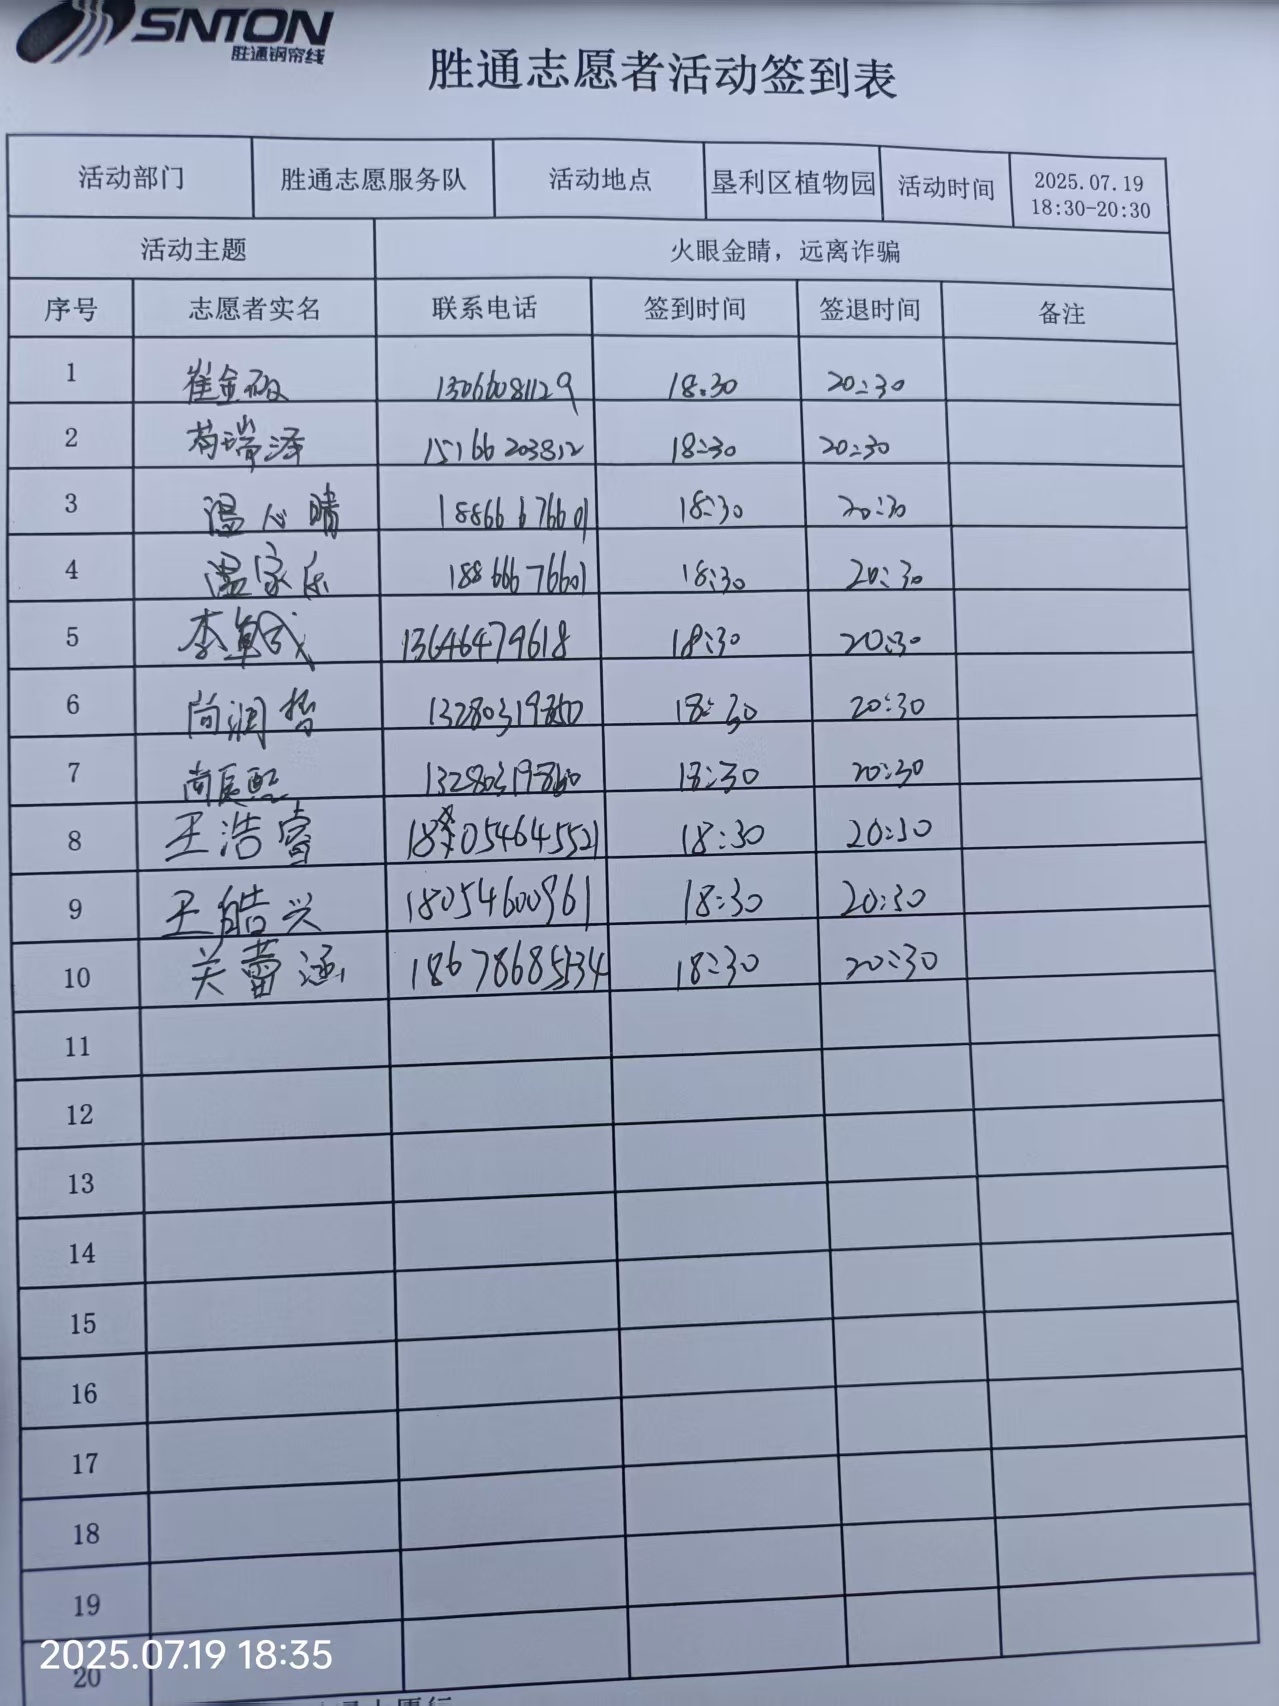 SNTON
胜通钢帘线
胜通志愿者活动签到表
活动部门 胜通志愿服务队 活动地点 垦利区植物园 活动时间 2025.07.19 18:30-20:30
活动主题 火眼金睛，远离诈骗
序号 志愿者实名 联系电话 签到时间 签退时间 备注
1 崔金 13066081129 18:30 20:30
2 苟瑞泽 15166203812 18:30 20:30
3 温心晴 18866676601 18:30 20:30
4 温家乐 18866676601 18:30 20:30
5 李 13646479618 18:30 20:30
6 尚润哲 18:30 20:30
7 尚辰熙 13280319860 18:30 20:30
8 王浩睿 18:30 20:30
9 王皓兴 18054600961 18:30 20:30
10 关蕾涵 18:30 20:30
11
12
13
14
15
16
17
18
19
20
2025.07.19 18:35